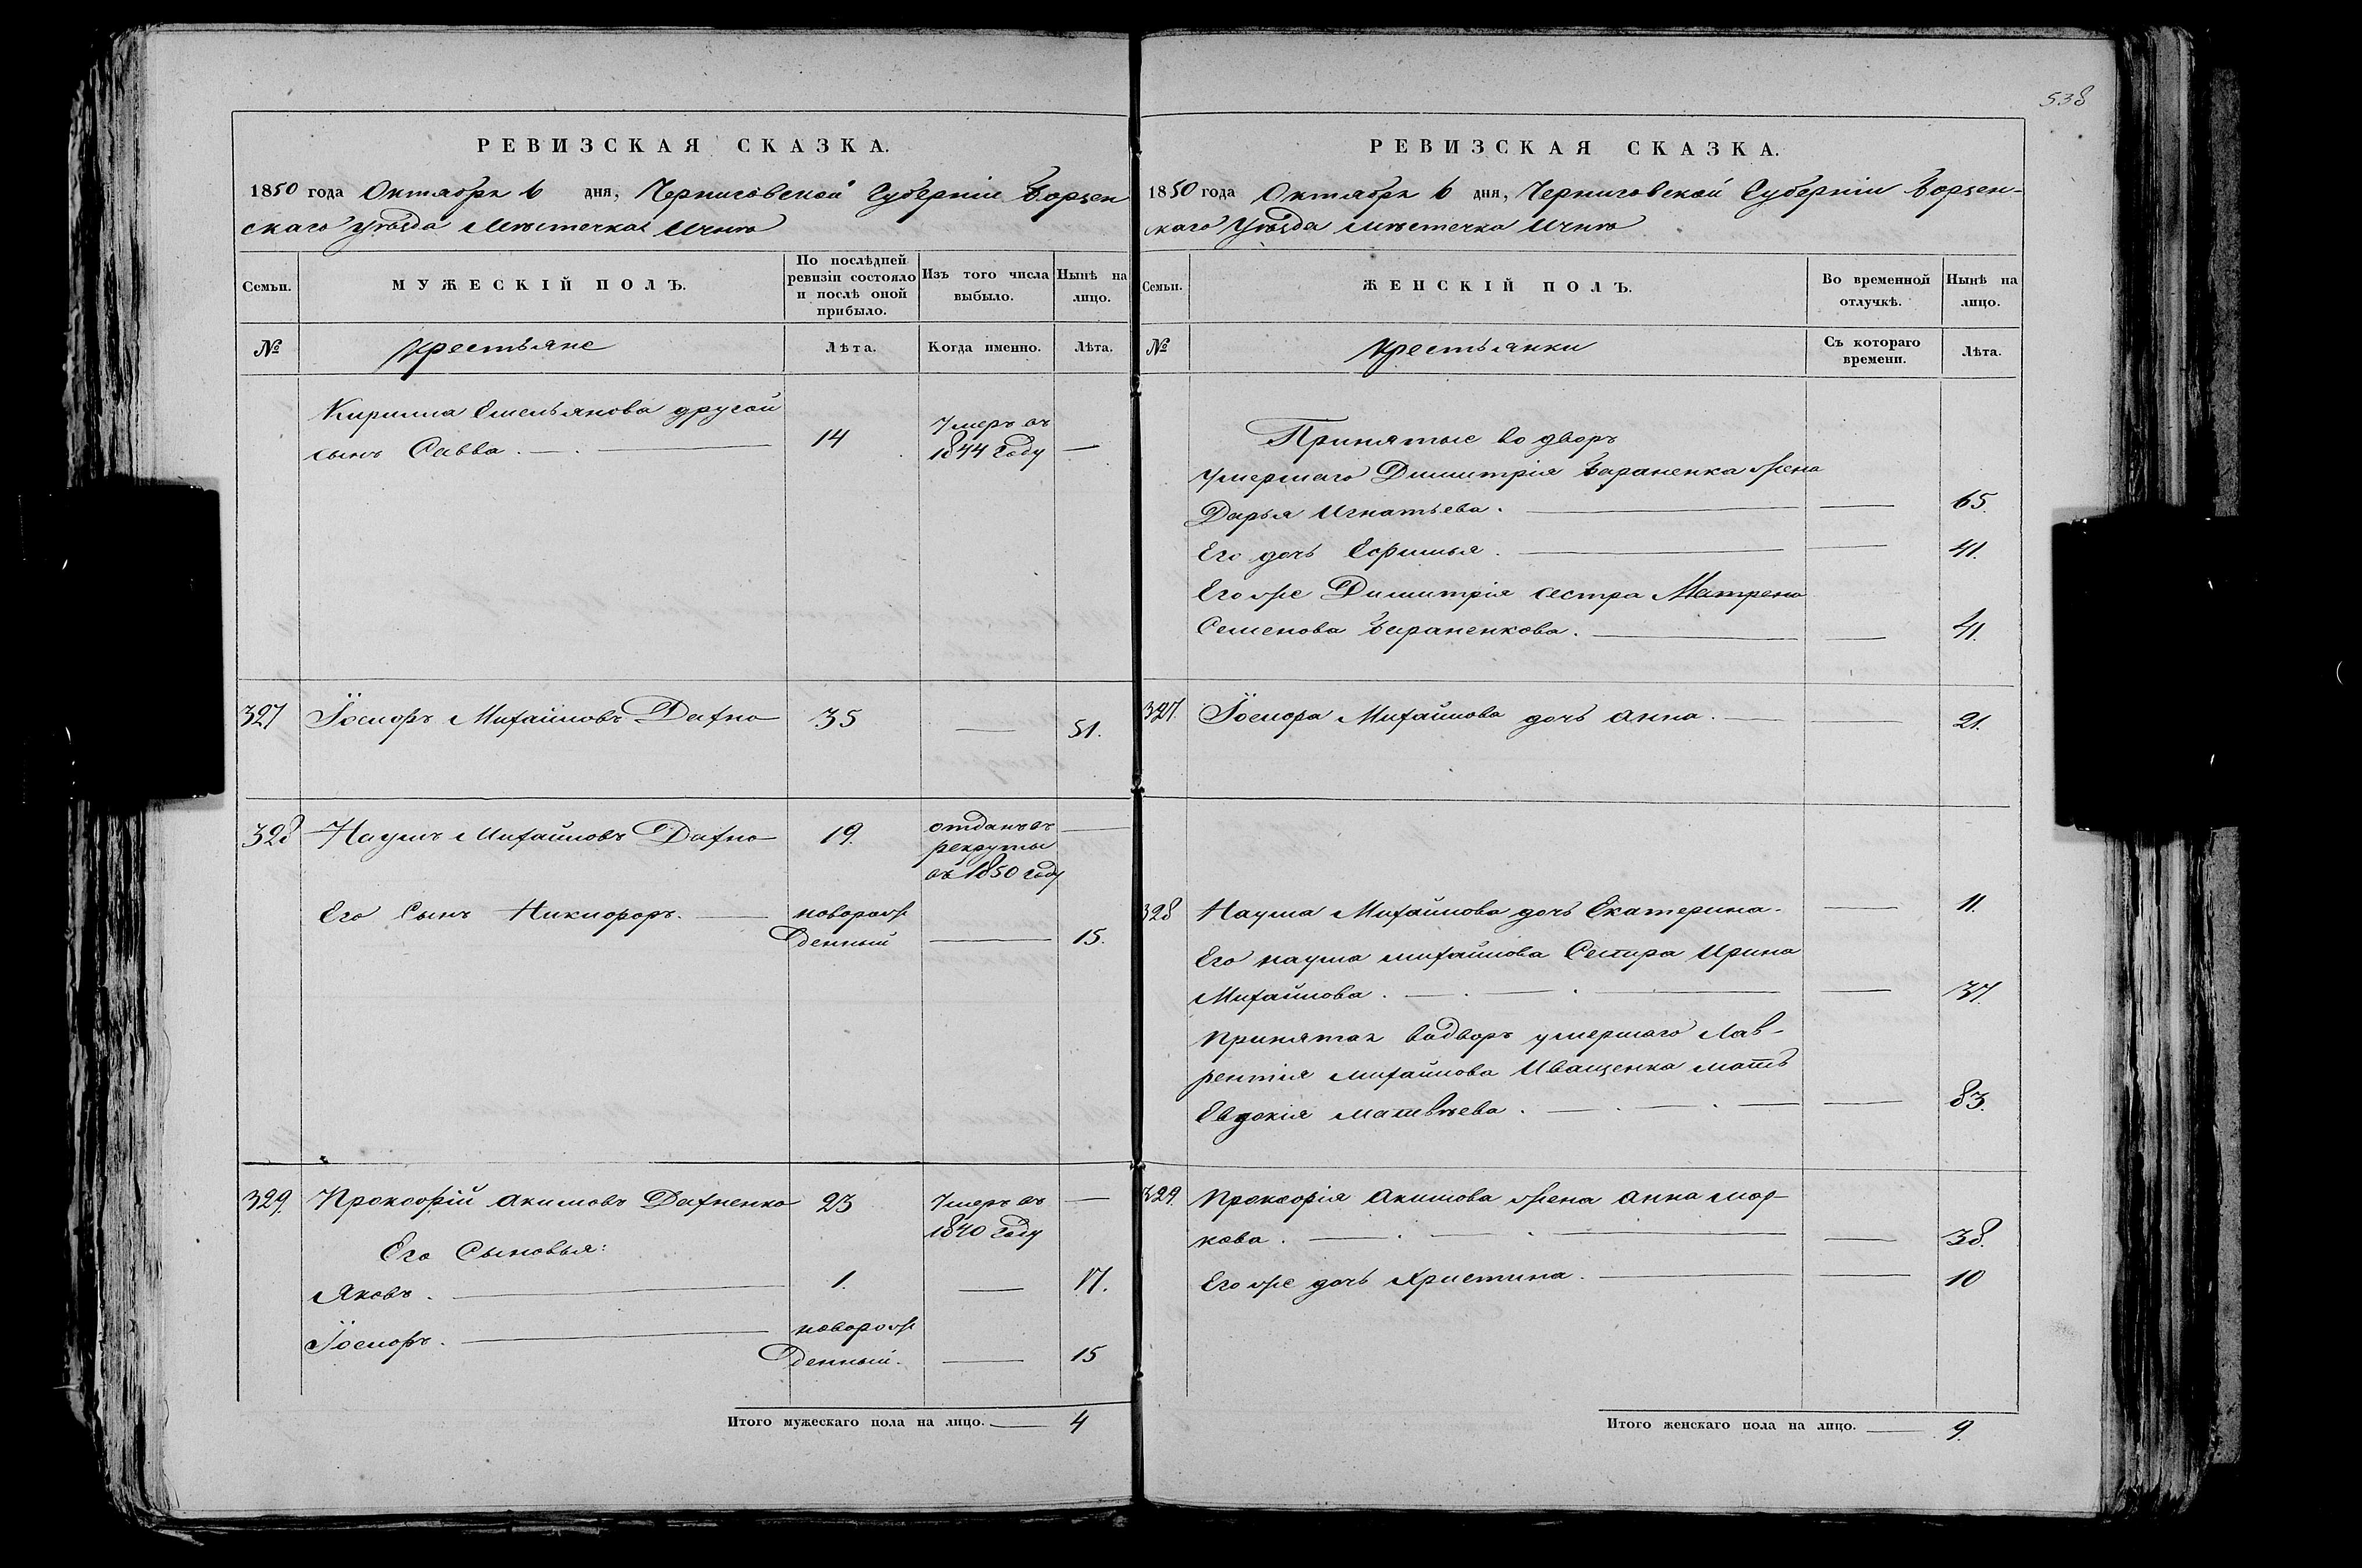 538
РЕВИЗСКАЯ СКАЗКА.
1850 года Октября 6 дня, Черниговской Губерніи Борзен
скаго уѣзда Мѣстечка Ичнѣ
Семьи.
МУЖЕСКІЙ ПОЛЪ.
По послѣдней ревизіи состояло и послѣ оной прибыло.
Изъ того числа выбыло.
Нынѣ на лицо.
№
Крестьяне
Лѣта.
Когда именно.
Лѣта.
Кирилла Емельянова другой
сынъ Савва. 14 Умеръ въ 1844 году —
327 Іосифъ Михайловъ Дахно 35 — 51.
328 Наумъ Михайловъ Дахно 19. отданъ въ —
рекруты
въ 1850 году
Его Сынъ Никифоръ. новорож
денный — 15.
329. Прокофій Акимовъ Дахненко 23 Умеръ въ —
1840 году
Его Сыновья:
Яковъ. 1. — 17.
Іосифъ. новорож
денный. — 15
Итого мужескаго пола на лицо. — 4
РЕВИЗСКАЯ СКАЗКА.
1850 года Октября 6 дня, Черниговской Губерніи Борзен-
скаго Уѣзда мѣстечка Ичнѣ
Семьи.
ЖЕНСКІЙ ПОЛЪ.
Во временной отлучкѣ.
Нынѣ на лицо.
№
Крестьянки
Съ котораго времени.
Лѣта.
Принятые во дворъ
умершаго Димитрія Бараненка жена
Дарья Игнатьева. — 65.
Его дочь — 41.
Его же Димитрія сестра Матрена
Семенова Бараненкова. — 41.
327. Іосифа Михайлова дочь Анна. — 21.
328 Наума Михайлова дочь Екатерина. — 11.
Его наума михайлова Сестра Ирина
Михайлова. — 37.
принятая водворъ умершаго Лав-
рентія михайлова Иващенка мать
Евдокія матвѣева. — 83.
329. Прокофія Акимова жена анна мар-
кова. — 38.
Его же дочь Христина. — 10
Итого женскаго пола на лицо. — 9.